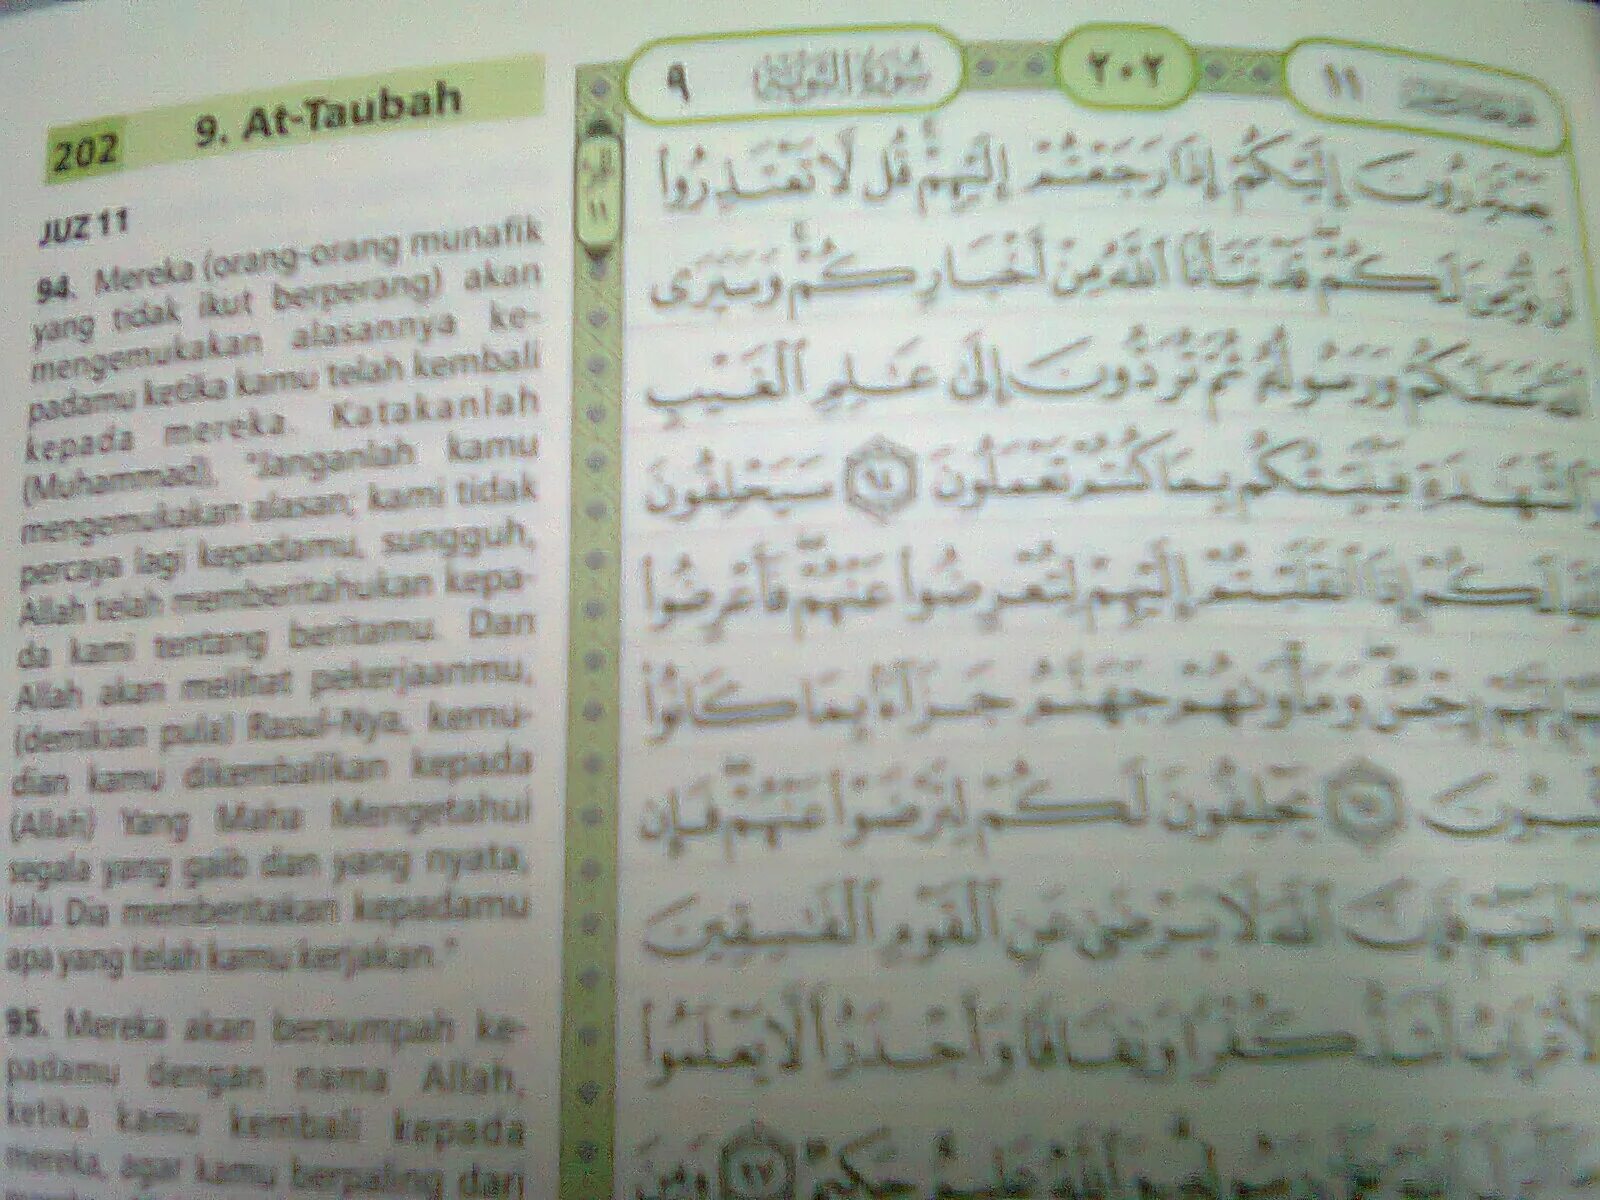 202 9. At-Taubah
JUZ 11
94. Mereka (orang-orang munafik
yang tidak ikut berperang) akan
mengemukakan alasannya ke-
padamu ketika kamu telah kembali
kepada mereka. Katakanlah
(Muhammad), "Janganlah kamu
mengemukakan alasan; kami tidak
percaya lagi kepadamu, sungguh,
Allah telah memberitahukan kepa-
da kami tentang beritamu. Dan
Allah akan melihat pekerjaanmu,
(demikian pula) Rasul-Nya, kemu-
dian kamu dikembalikan kepada
(Allah) Yang Maha Mengetahui
segala yang gaib dan yang nyata,
lalu Dia memberitakan kepadamu
apa yang telah kamu kerjakan."
95. Mereka akan bersumpah ke-
padamu dengan nama Allah,
ketika kamu kembali kepada
mereka, agar kamu berpaling dari
١١ ٢٠٢ سورة التوبة ٩
الجزء ١١
يَعْتَذِرُونَ إِلَيْكُمْ إِذَا رَجَعْتُمْ إِلَيْهِمْ قُل لَّا تَعْتَذِرُوا
لَكُمْ قَدْ نَبَّأَنَا اللَّهُ مِنْ أَخْبَارِكُمْ وَسَيَرَى
عَمَلَكُمْ وَرَسُولُهُ ثُمَّ تُرَدُّونَ إِلَى عَالِمِ الْغَيْبِ
فَيُنَبِّئُكُم بِمَا كُنتُمْ تَعْمَلُونَ ٩٤ سَيَحْلِفُونَ
لَكُمْ إِذَا انقَلَبْتُمْ إِلَيْهِمْ لِتُعْرِضُوا عَنْهُمْ فَأَعْرِضُوا
إِنَّهُمْ رِجْسٌ وَمَأْوَاهُمْ جَهَنَّمُ جَزَاءً بِمَا كَانُوا
٩٥ يَحْلِفُونَ لَكُمْ لِتَرْضَوْا عَنْهُمْ فَإِن
فَإِنَّ اللَّهَ لَا يَرْضَى عَنِ الْقَوْمِ الْفَاسِقِينَ
أَشَدُّ كُفْرًا وَنِفَاقًا وَأَجْدَرُ أَلَّا يَعْلَمُوا
عَلِيمٌ حَكِيمٌ ٩٧ وَمِنَ